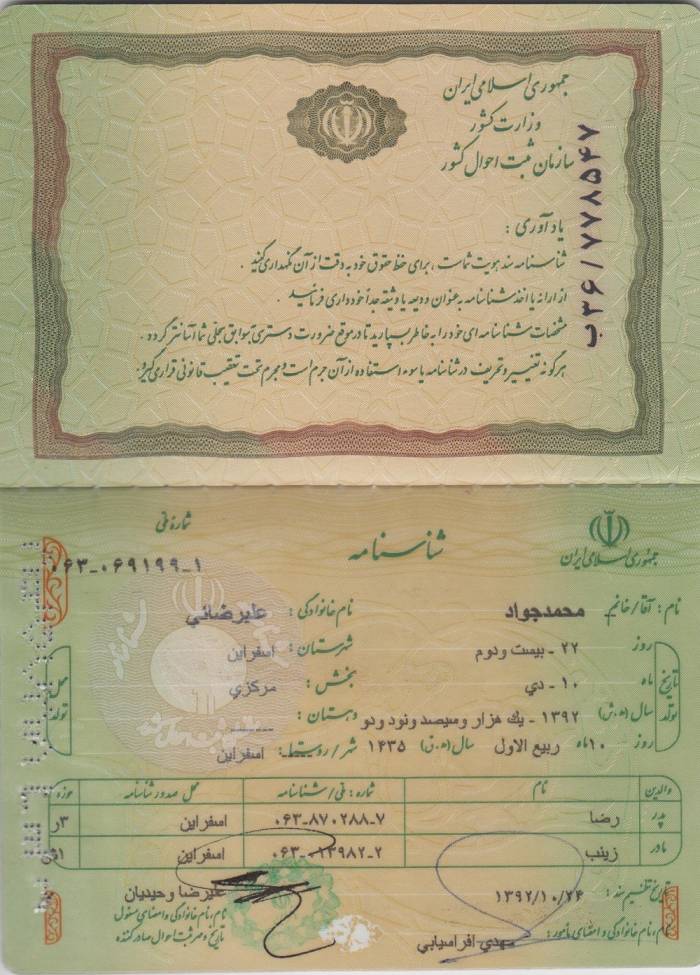 جمهوری اسلامی ایران
وزارت کشور
سازمان ثبت احوال کشور
ب۳۶/۷۷۸۵۴۷
یادآوری :
شناسنامه سند هویت شماست ، برای حفظ حقوق خود به دقت از آن نگهداری کنید .
از ارائه یا اخذ شناسنامه به عنوان ودیعه یا وثیقه جداً خودداری فرمائید .
مشخصات شناسنامه ای خود را به خاطر بسپارید تا در موقع ضرورت دسترسی به سوابق سجلی شما آسانتر گردد .
هرگونه تغییر و تحریف در شناسنامه یا سوء استفاده از آن جرم است و مجرم تحت تعقیب قانونی قرار می گیرد .
جمهوری اسلامی ایران
شناسنامه
شماره ملی
۰۶۳-۰۶۹۱۹۹-۱
نام : آقا/خانم محمدجواد نام خانوادگی : علیرضائي
تاریخ تولد
روز ۲۲ - بیست ودوم شهرستان : اسفراین
ماه ۱۰ - دي بخش : مرکزي
سال(ه.ش) ۱۳۹۲ - یك هزار وسیصد ونود ودو دهستان :
روز ۱۰ ماه ربیع الاول سال(ه.ق) ۱۴۳۵ شهر/روستا : اسفراین
محل تولد
والدین نام شماره : ملی/شناسنامه محل صدور شناسنامه حوزه
پدر رضا ۰۶۳-۸۷۰۲۸۸-۷ اسفراین ۳ر
مادر زینب ۰۶۳-۰۱۳۹۸۲-۲ اسفراین
تاریخ تنظیم سند : ۱۳۹۲/۱۰/۲۴ علیرضا وحیدیان
نام، نام خانوادگی و امضای مأمور : مهدي افراسیابي
نام، نام خانوادگی و امضای مسئول
تاریخ و مهر ثبت احوال صادر کننده